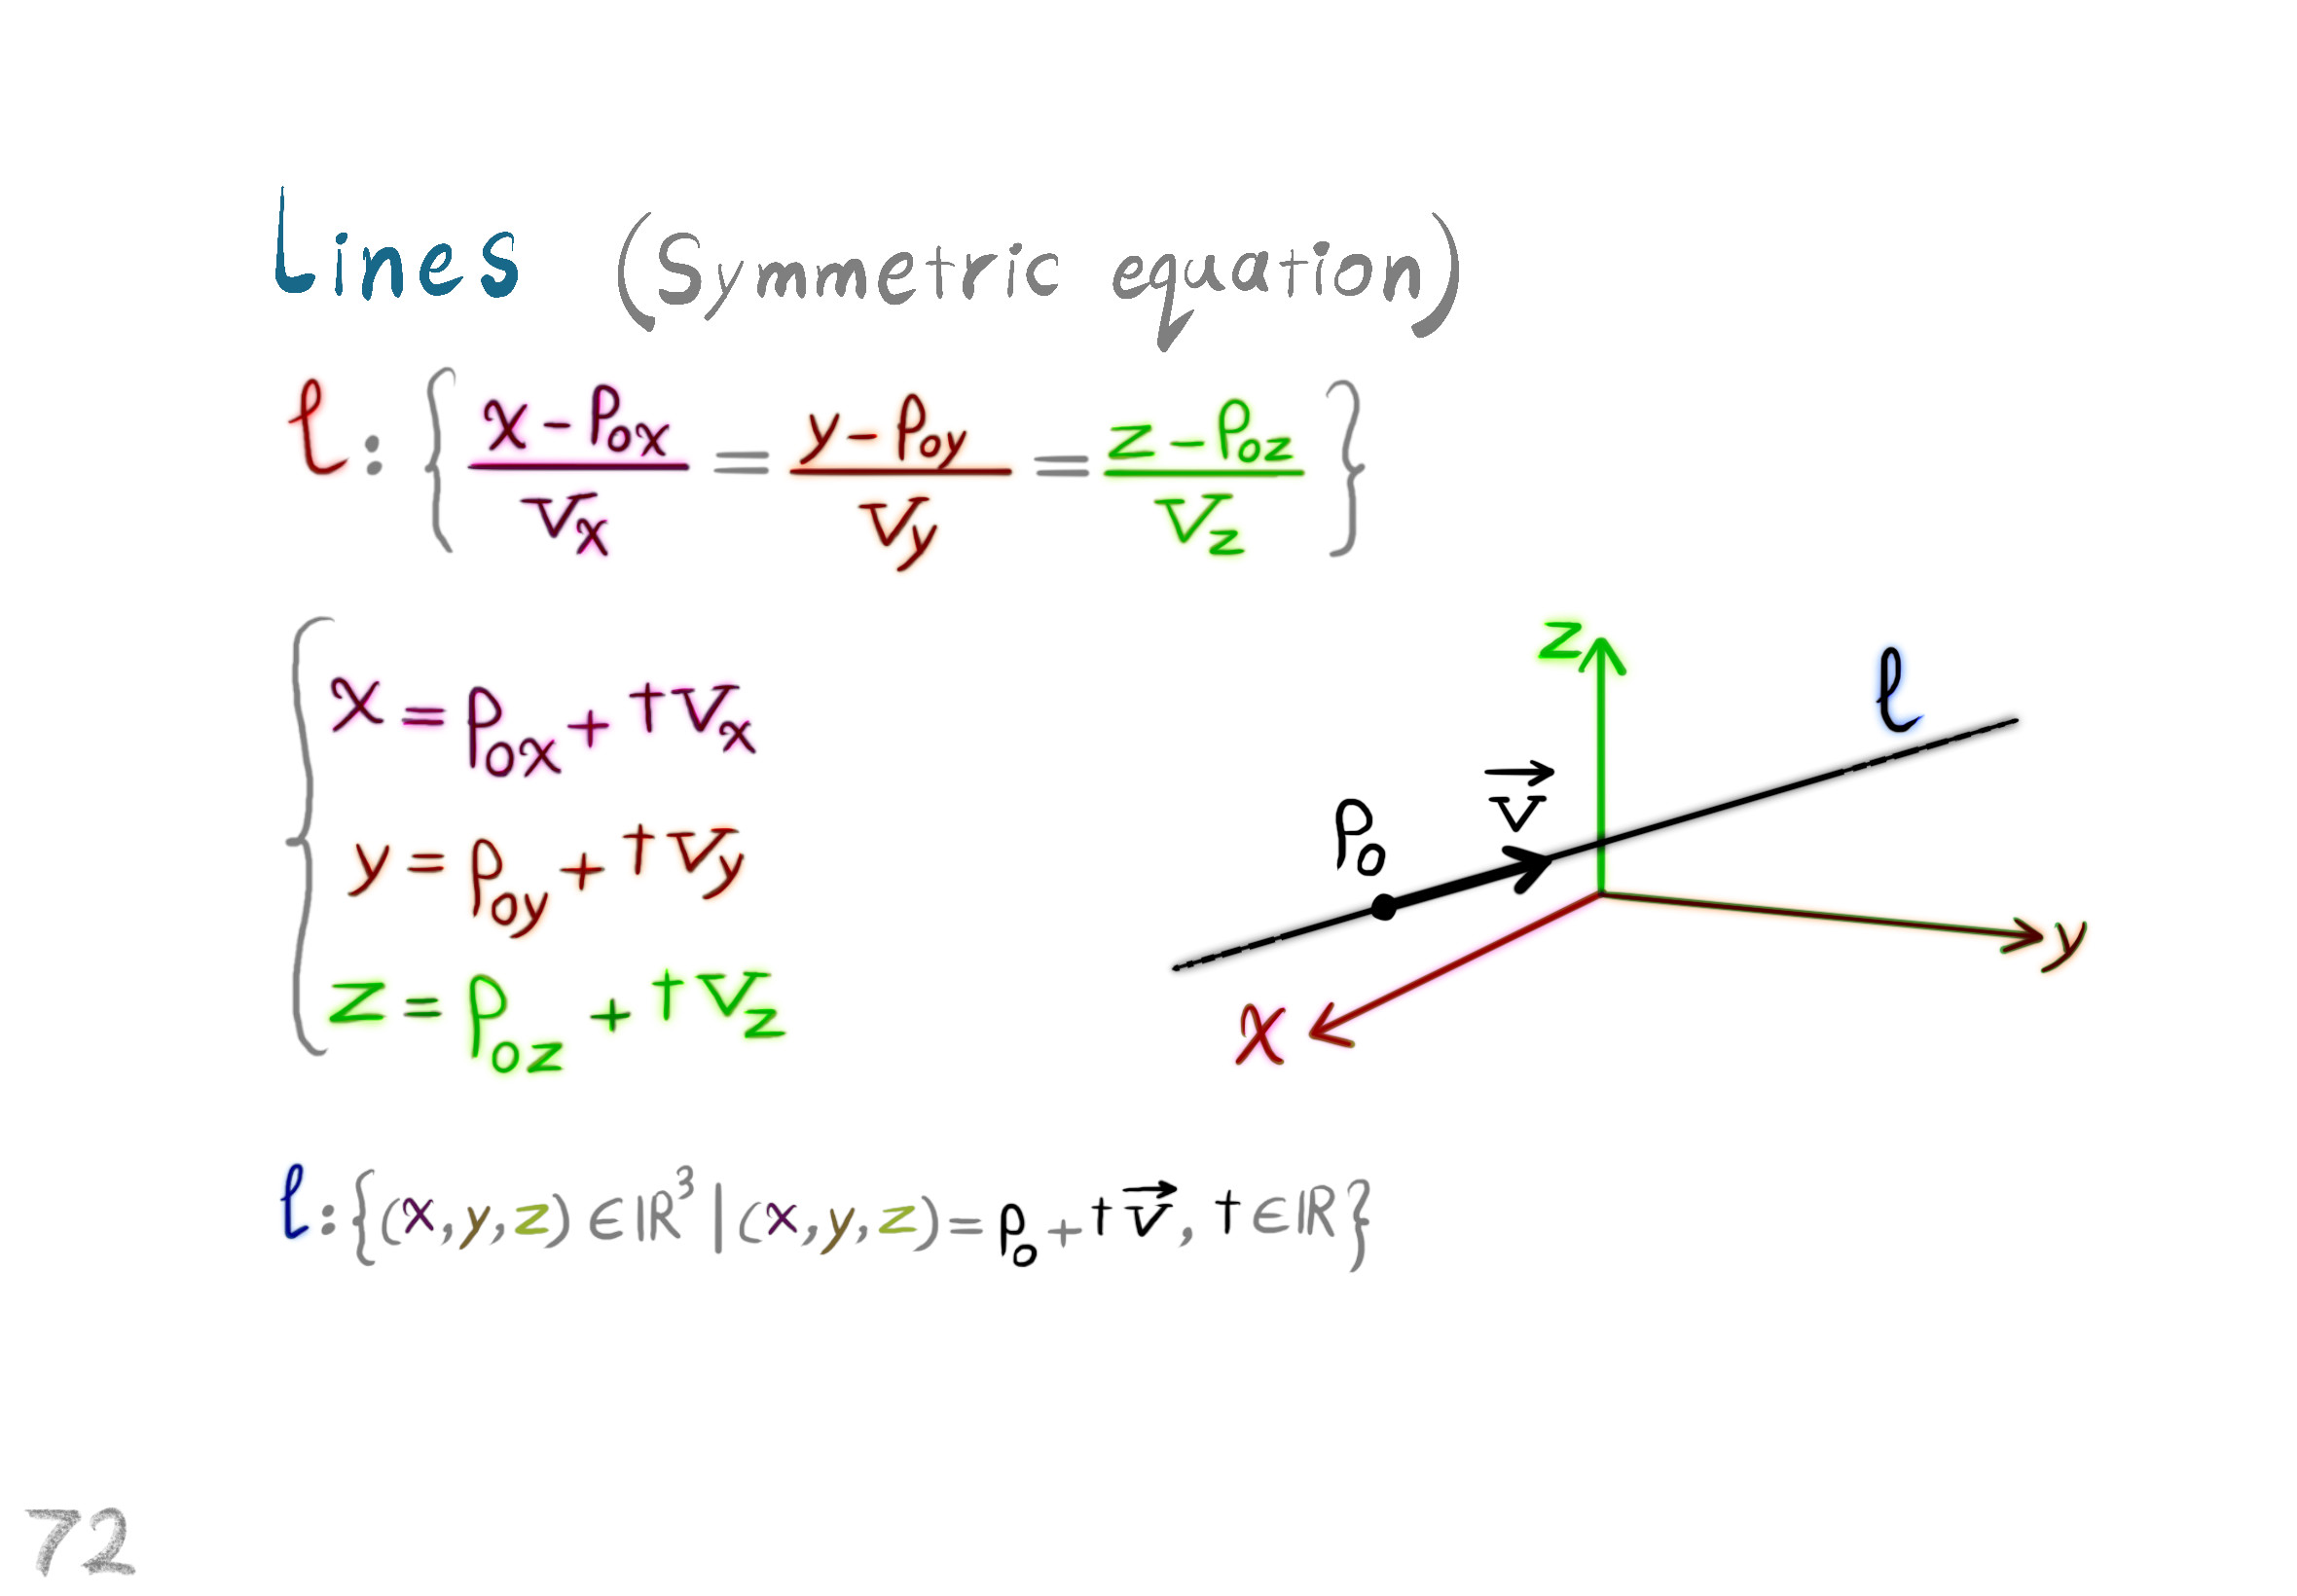 Lines (Symmetric equation)
ℓ: { (x - p₀ₓ)/vₓ = (y - p₀y)/v_y = (z - p₀z)/v_z }
x = p₀ₓ + tvₓ
y = p₀y + tv_y
z = p₀z + tv_z
z
ℓ
v⃗
p₀
y
x
ℓ: {(x, y, z) ∈ ℝ³ | (x, y, z) = p₀ + tv⃗, t ∈ ℝ}
72